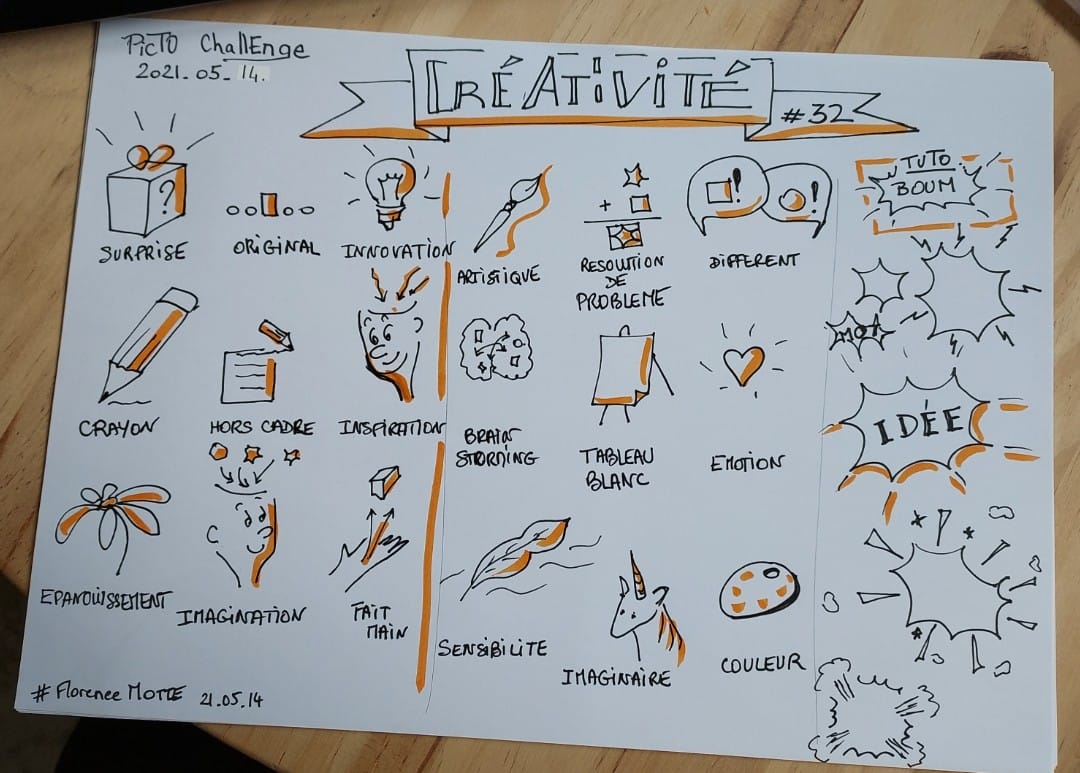 PicTO ChallEnge
2021.05.14.
CRÉATiViTÉ
#32
SURPRISE
ORIGINAL
INNOVATION
ARTISTIQUE
RESOLUTION
DE
PROBLEME
DIFFERENT
TUTO
BOUM
CRAYON
HORS CADRE
INSPIRATION
BRAIN
STORMING
TABLEAU
BLANC
EMOTION
MOT
IDÉE
EPANOUISSEMENT
IMAGINATION
FAIT
MAIN
SENSIBILITE
IMAGINAIRE
COULEUR
# Florence MOTTE 21.05.14